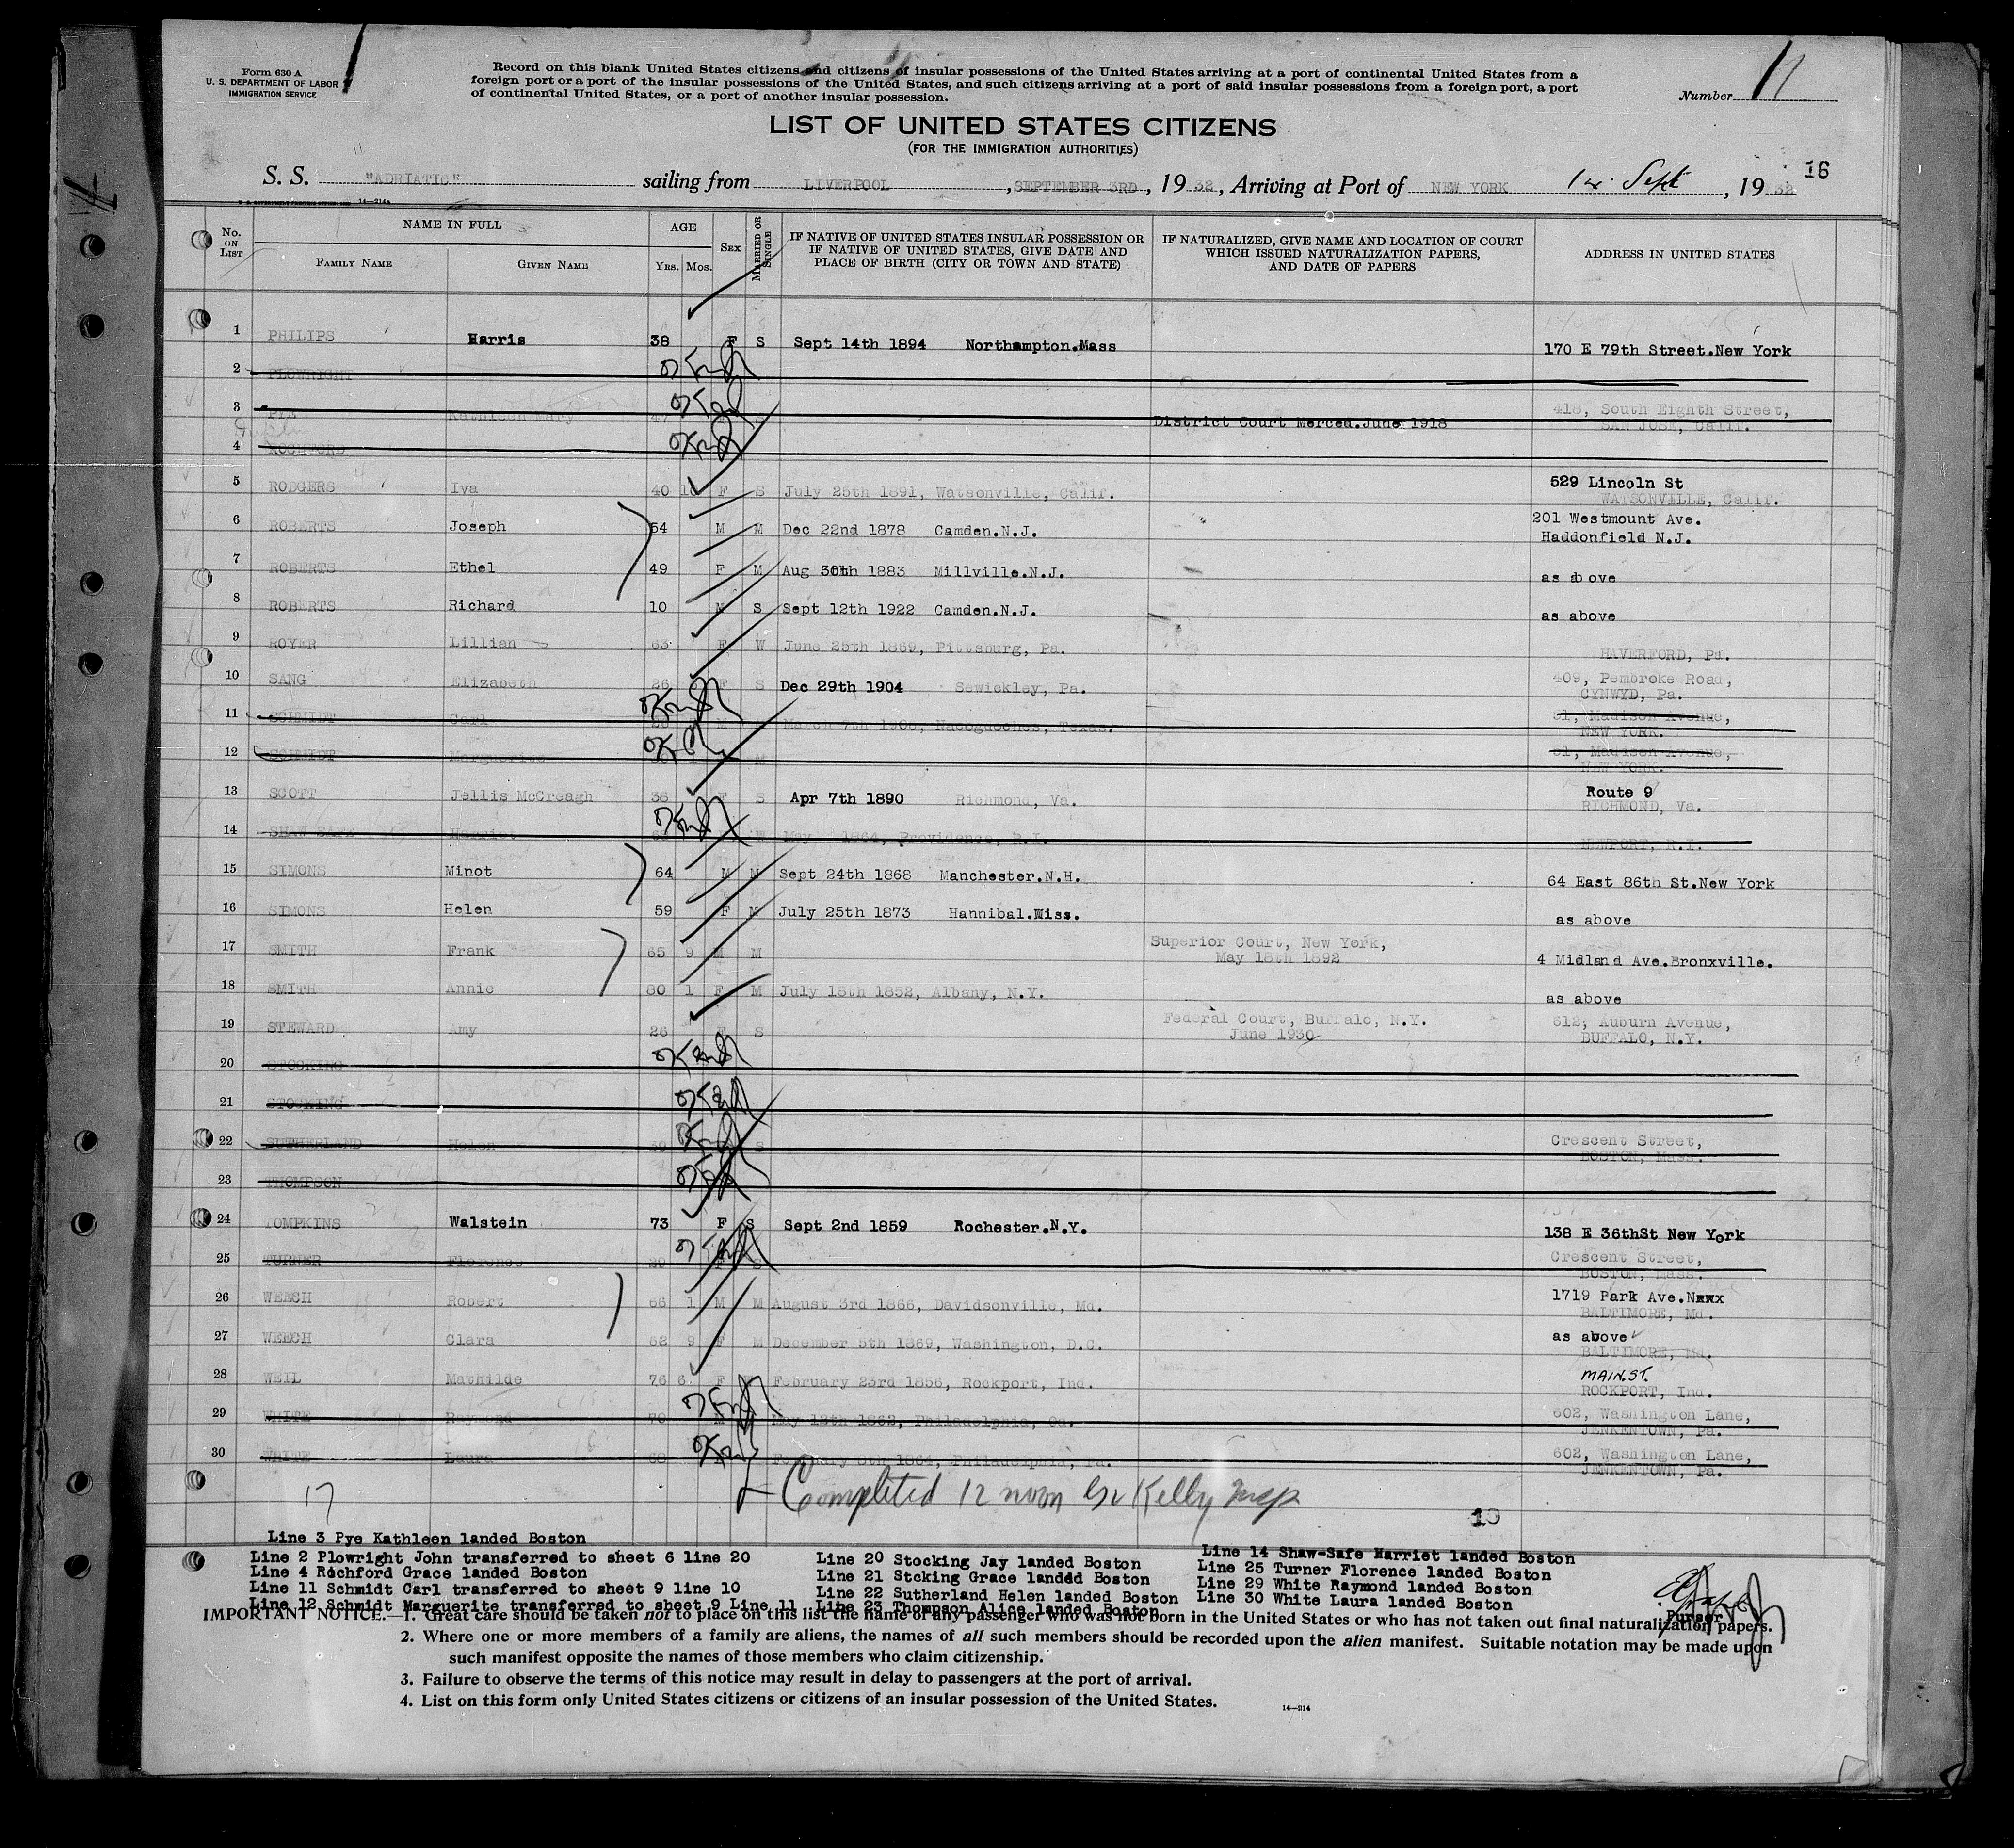 Form 630 A
U. S. DEPARTMENT OF LABOR
IMMIGRATION SERVICE
Record on this blank United States citizens and citizens of insular possessions of the United States arriving at a port of continental United States from a
foreign port or a port of the insular possessions of the United States, and such citizens arriving at a port of said insular possessions from a foreign port, a port
of continental United States, or a port of another insular possession.
Number 11
LIST OF UNITED STATES CITIZENS
(FOR THE IMMIGRATION AUTHORITIES)
16
S. S. "ADRIATIC" sailing from LIVERPOOL, SEPTEMBER 3RD, 1932, Arriving at Port of NEW YORK Sept, 1932
14—214a
No. ON LIST
NAME IN FULL
FAMILY NAME GIVEN NAME
AGE
YRS. MOS.
SEX
MARRIED OR SINGLE
IF NATIVE OF UNITED STATES INSULAR POSSESSION OR
IF NATIVE OF UNITED STATES, GIVE DATE AND
PLACE OF BIRTH (CITY OR TOWN AND STATE)
IF NATURALIZED, GIVE NAME AND LOCATION OF COURT
WHICH ISSUED NATURALIZATION PAPERS,
AND DATE OF PAPERS
ADDRESS IN UNITED STATES
1 PHILIPS Harris 38 F S Sept 14th 1894 Northampton.Mass 170 E 79th Street.New York
2 PLOWRIGHT
3 PYE Kathleen Mary 47 District Court Merced.June 1918 418, South Eighth Street,
SAN JOSE, Calif.
4 ROCHFORD
5 RODGERS Iva 40 10 F S July 25th 1891, Watsonville, Calif. 529 Lincoln St
WATSONVILLE, Calif.
6 ROBERTS Joseph 54 M M Dec 22nd 1878 Camden.N.J. 201 Westmount Ave.
Haddonfield N.J.
7 ROBERTS Ethel 49 F M Aug 30th 1883 Millville.N.J. as above
8 ROBERTS Richard 10 M S Sept 12th 1922 Camden.N.J. as above
9 ROYER Lillian 63 F W June 25th 1869, Pittsburg, Pa. HAVERFORD, Pa.
10 SANG Elizabeth 26 F S Dec 29th 1904 Sewickley, Pa. 409, Pembroke Road,
CYNWYD, Pa.
11 SCHMIDT Carl 26 M March 7th 1906, Nacogdoches, Texas. 61, Madison Avenue,
NEW YORK.
12 SCHMIDT Marguerite M 61, Madison Avenue,
NEW YORK.
13 SCOTT Jellis McCreagh 38 F S Apr 7th 1890 Richmond, Va. Route 9
RICHMOND, Va.
14 SHAW SAFE Harriet W May 1864, Providence, R.I. NEWPORT, R.I.
15 SIMONS Minot 64 M M Sept 24th 1868 Manchester.N.H. 64 East 86th St.New York
16 SIMONS Helen 59 F M July 25th 1873 Hannibal.Miss. as above
17 SMITH Frank 65 9 M M Superior Court, New York,
May 18th 1892 4 Midland Ave.Bronxville.
18 SMITH Annie 80 1 F M July 18th 1852, Albany, N.Y. as above
19 STEWARD Amy 26 F S Federal Court, Buffalo, N.Y.
June 1930 612, Auburn Avenue,
BUFFALO, N.Y.
20 STOCKING
21 STOCKING
22 SUTHERLAND Helen 39 S Crescent Street,
BOSTON, Mass.
23 THOMPSON
24 TOMPKINS Walstein 73 F S Sept 2nd 1859 Rochester.N.Y. 138 E 36thSt New York
25 TURNER Florence 39 F S Crescent Street,
BOSTON, Mass.
26 WEECH Robert 66 1 M M August 3rd 1866, Davidsonville, Md. 1719 Park Ave.Nxxx
BALTIMORE, Md.
27 WEECH Clara 62 9 F M December 5th 1869, Washington, D.C. as above
BALTIMORE, Md.
28 WEIL Mathilde 76 6 F February 23rd 1856, Rockport, Ind. MAIN.ST.
ROCKPORT, Ind.
29 WHITE Raymond 70 M May 13th 1862, Philadelphia, 602, Washington Lane,
JENKENTOWN, Pa.
30 WHITE Laura 68 Philadelphia, Pa. 602, Washington Lane,
JENKENTOWN, Pa.
17
Completed 12 noon Kelly Insp
10
Line 3 Pye Kathleen landed Boston
Line 2 Plowright John transferred to sheet 6 line 20
Line 4 Rochford Grace landed Boston
Line 11 Schmidt Carl transferred to sheet 9 line 10
Line 12 Schmidt Marguerite transferred to sheet 9 Line 11
Line 20 Stocking Jay landed Boston
Line 21 Stcking Grace landed Boston
Line 22 Sutherland Helen landed Boston
Line 23 Thompson Alice landed Boston
Line 14 Shaw-Safe Harriet landed Boston
Line 25 Turner Florence landed Boston
Line 29 White Raymond landed Boston
Line 30 White Laura landed Boston
Purser
IMPORTANT NOTICE.—1. Great care should be taken not to place on this list the name of any passenger who was not born in the United States or who has not taken out final naturalization papers.
2. Where one or more members of a family are aliens, the names of all such members should be recorded upon the alien manifest. Suitable notation may be made upon
such manifest opposite the names of those members who claim citizenship.
3. Failure to observe the terms of this notice may result in delay to passengers at the port of arrival.
4. List on this form only United States citizens or citizens of an insular possession of the United States.
14—214